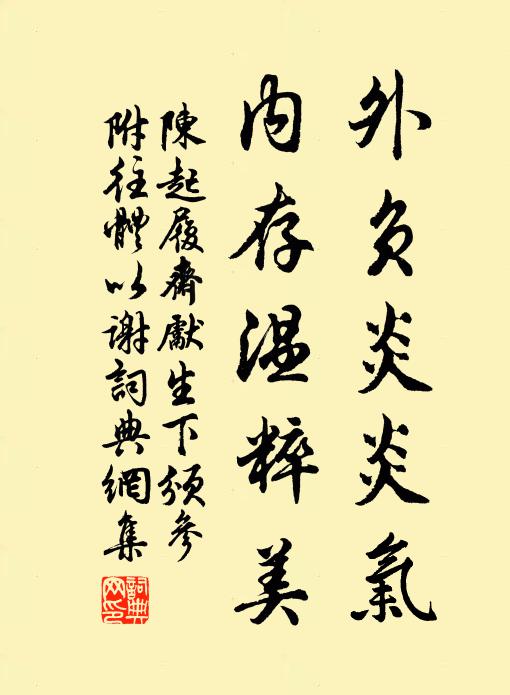 外負炎炎氣
内存温粹美
陳起履齋獻生下頒參
附往體以謝詞典網集
詞典
网印